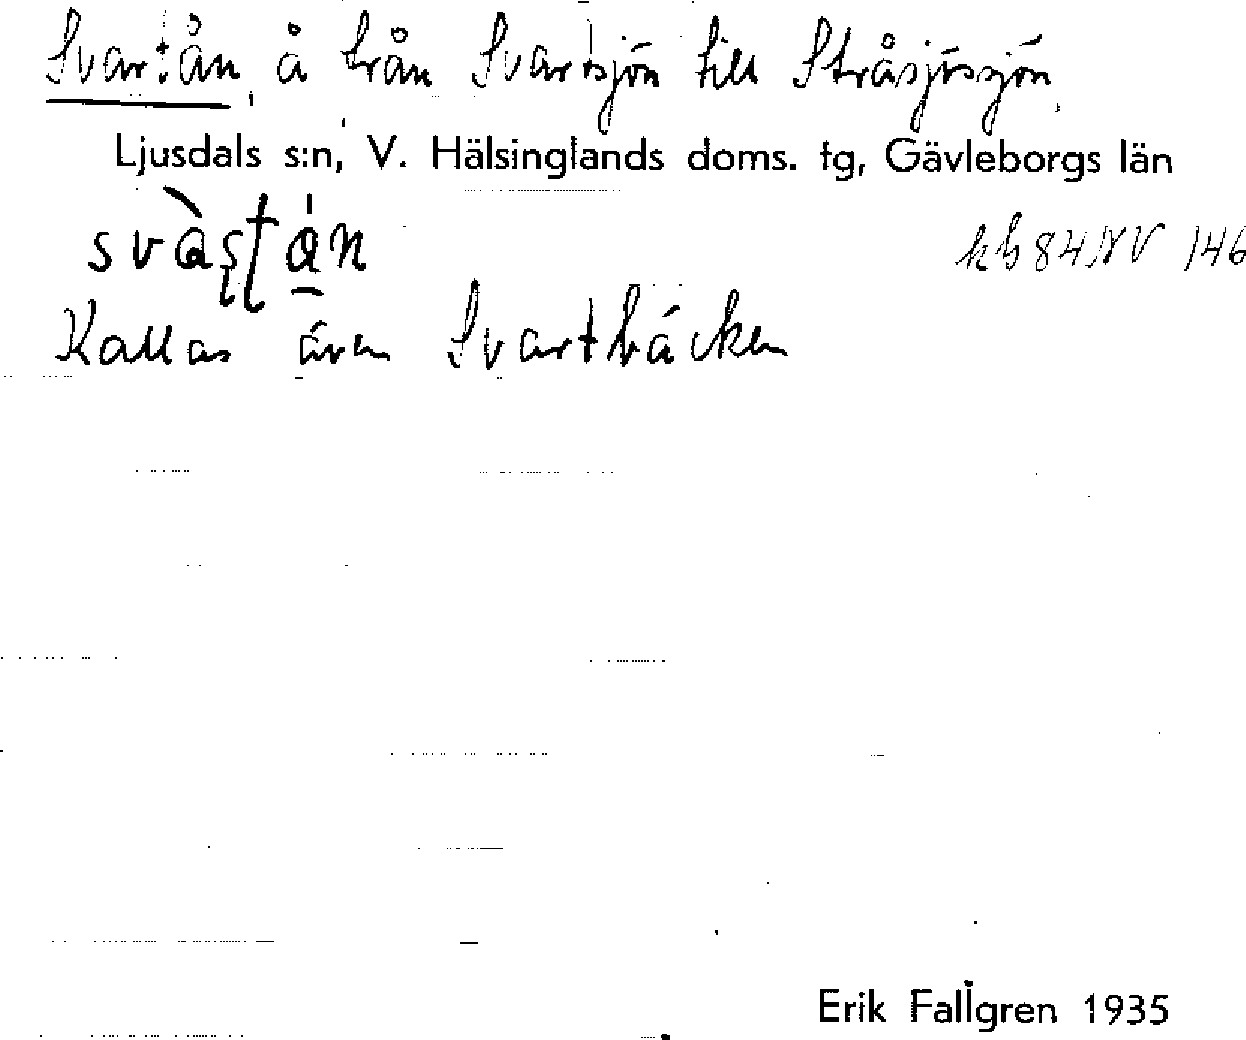 Svartån, å från Svartsjön till Stråsjösjön.
Ljusdals s:n, V. Hälsinglands doms. tg, Gävleborgs län
kb 84 NV 146
Kallas även Svartbäcken
Erik Fallgren 1935